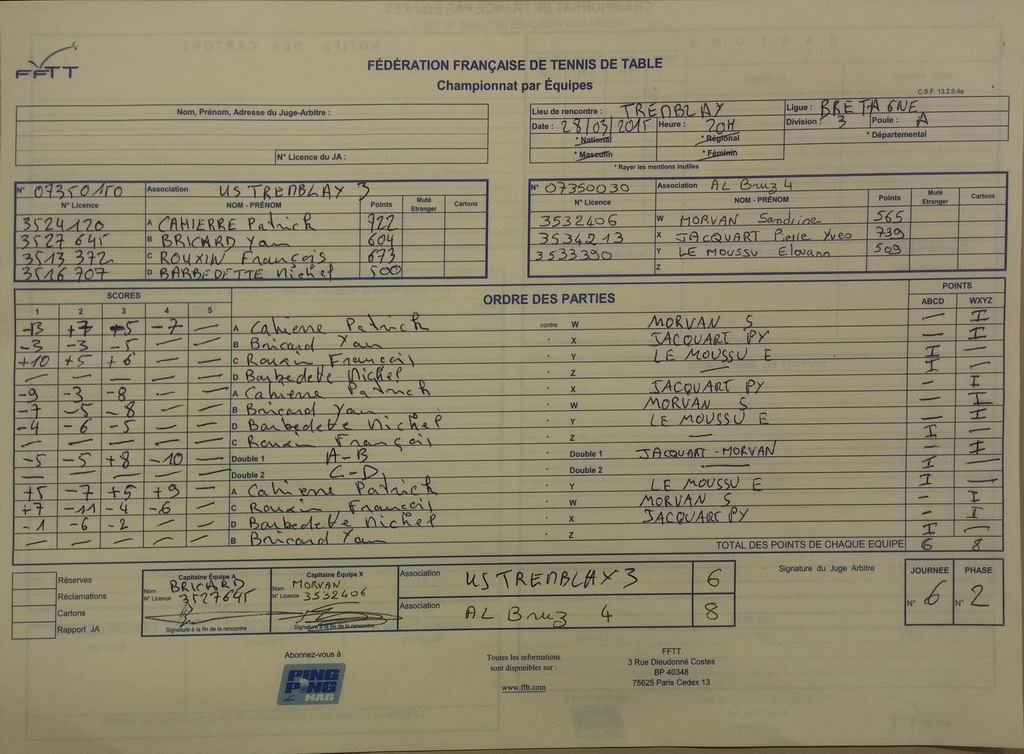 FFTT
FÉDÉRATION FRANÇAISE DE TENNIS DE TABLE
Championnat par Équipes
C.S.F. 13.2.0.4a
Nom, Prénom, Adresse du Juge-Arbitre :
N° Licence du JA :
Lieu de rencontre : TREMBLAY Ligue : BRETAGNE
Date : 28/03/2015 Heure : 20H Division : 3 Poule : A
* National * Régional * Départemental
* Masculin * Féminin
* Rayer les mentions inutiles
N° 07350150 Association US TREMBLAY 3
N° Licence NOM - PRÉNOM Points Muté Etranger Cartons
3524120 A CAHIERRE Patrick 722
3527645 B BRICARD Yan 604
3513372 C ROUXIN François 673
3516707 D BARBEDETTE Michel 500
N° 07350030 Association AL Bruz 4
N° Licence NOM - PRÉNOM Points Muté Etranger Cartons
3532406 W MORVAN Sandrine 565
3534213 X JACQUART Pierre Yves 739
3533390 Y LE MOUSSU Elouann 509
Z
SCORES ORDRE DES PARTIES POINTS
1 2 3 4 5 ABCD WXYZ
-13 +7 -5 -7 — A Cahierre Patrick contre W MORVAN S — I
-3 -3 -5 — — B Bricard Yan " X JACQUART PY — I
+10 +5 +6 — — C Rouxin François " Y LE MOUSSU E I —
— — — — — D Barbedette Michel " Z — I —
-9 -3 -8 — — A Cahierre Patrick " X JACQUART PY — I
-7 -5 -8 — — B Bricard Yan " W MORVAN S — I
-4 -6 -5 — — D Barbedette Michel " Y LE MOUSSU E — I
— — — — — C Rouxin François " Z — I —
-5 -5 +8 -10 — Double 1 A-B " Double 1 JACQUART-MORVAN — I
— — — — — Double 2 C-D " Double 2 — I —
+5 -7 +5 +9 — A Cahierre Patrick " Y LE MOUSSU E I —
+7 -11 -4 -6 — C Rouxin François " W MORVAN S — I
-1 -6 -2 — — D Barbedette Michel " X JACQUART PY — I
— — — — — B Bricard Yan " Z I —
TOTAL DES POINTS DE CHAQUE EQUIPE 6 8
Réserves
Réclamations
Cartons
Rapport JA
Capitaine Équipe A
Nom BRICARD
N° Licence 3527645
Signature à la fin de la rencontre
Capitaine Équipe X
Nom MORVAN
N° Licence 3532406
Signature à la fin de la rencontre
Association US TREMBLAY 3 6
Association AL Bruz 4 8
Signature du Juge Arbitre
JOURNEE PHASE
N° 6 N° 2
Abonnez-vous à
PING PONG MAG
Toutes les informations
sont disponibles sur :
www.fftt.com
FFTT
3 Rue Dieudonné Costes
BP 40348
75625 Paris Cedex 13